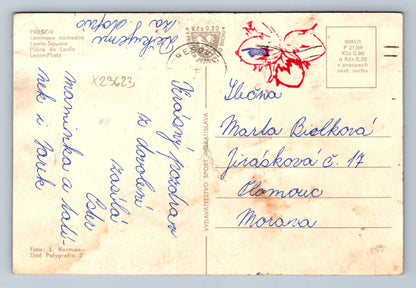 PREŠOV
Leninovo námestie
Lenin-Square
Place de Lenin
Lenin-Platz
X23623
Děkujeme
za
Krásný pozdrav
z dovolené
zasílá
maminka a tatí-
nek i Jarek
Foto: L. Rozman
Tlač Polygrafia 2
VYDAVATEĽSTVO ŠPORT BRATISLAVA
Kčs 0.20
PREŠOV
9091/1
P 21/69
à Kčs 0,60
a Kčs 0,20
v prospech
cest. ruchu
Slečna
Marta Bielková
Jiráskova č. 17
Olomouc
Morava